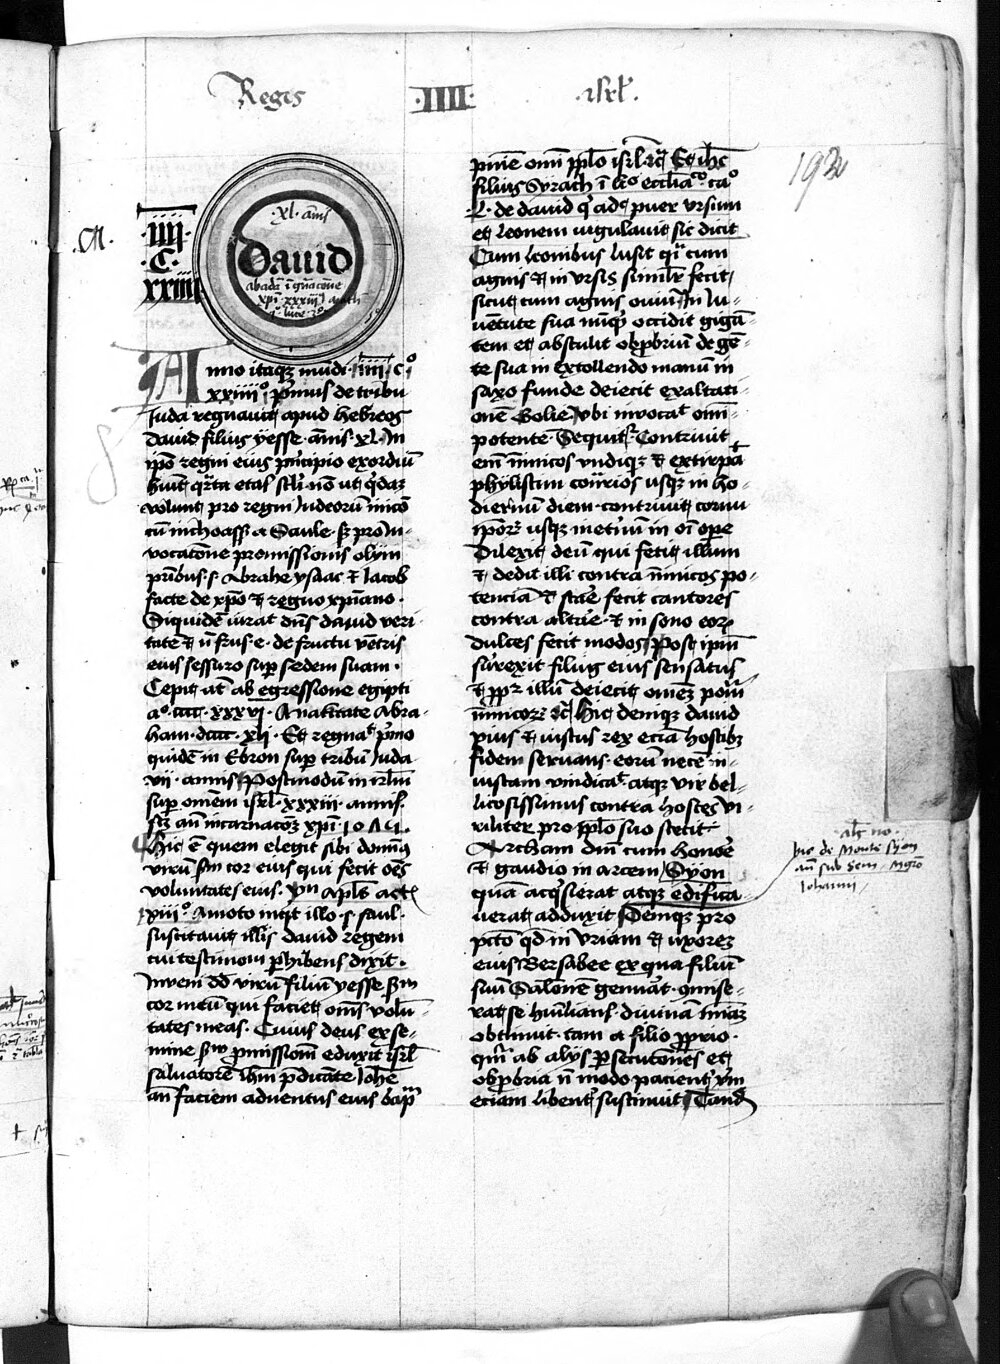 Regis
·IIII·
isrł.
193
·M·
·IIII·
·C·
xxiiii
·xl· annis
Dauid
abadā ī gnacōne
xpī xxxiii
Anno itaqz mūdi ·iiii·c°
xxiiii° pͥmus de tribu
Iuda regnauit apud hebreos
Dauid filius yesse annis xl. In
ipō regni eius principio exordiū
huīt qͣrta etas scłi nō ut qͥdaz
volunt pro regni Iudeorū inicō
cū inchoassz a Saule sz pro In-
vocatōne promissionis olym
prībus .s. Abrahe ysaac et Iacob
facte de xpō et regno xpīano ·
Siquidē iurat dn̄s dauid veri-
tate et n̄ frus. e. de fructu vētris
eius sessuro suꝑ sedem suam ·
Cepit at̄ ab egressione egipti
a° cccc. xxxvi. A natitate Abra-
ham. dccc. xli. Et regnaᵗ pͥmo
quidē in Ebron suꝑ tribū Iuda
vii. annis Postmodū in irlm̄
suꝑ omēm isrł xxxiii annis.
scz an̄ incarnacōz xpī
Hic ē quem elegit sibi domīs
virū sm̄ cor eius qui fecit oēs
voluntates eius. vn̄ apłs act
xiii° Amoto inqͥt illo .s. saul.
suscitauit illis dauid regem
cui testimoni ꝑhibens dixit.
Inveni dd̄ virū filiū yesse sm̄
cor meū qui faciet om̄s volū-
tates meas. Cuius deus ex se-
mine sm̄ pͥmissiom̄ eduxit isrł
saluatorē ihm̄ pͥdicāte Iohē
an̄ faciem aduentus eius bapᵐ
pnīe omī ppło isrł. rc̄ Et ihc̄
filius Syrach ī łi° ecclīaͨ° ca°
·l· de dauid qͥ adͨ puer vrsum
et leonem iugulauit sic dicit
Cum leonibus lusit qͣi cum
agnis et in vrsis similr̄ fecit
sicut cum agnis ouiū In Iu-
uētute sua nūqͥd occidit gigā-
tem et abstulit obꝓbriū de gē-
te sua in extollendo manū in
saxo funde deiecit exaltati-
onē Golie Vbi inuocaᵗ omī-
potentē Sequitʳ Contriuit
em̄ inīicos vndiqz et extirpaᵗ
phylistim cōtrarios usqz in ho-
diernū diem. contriuit cornu
ipōrꝫ usqz inetnū in oī ope
Dilexit deū qui fecit illum
et dedit illi contra inīicos po-
tenciā et stare fecit cantores
contra altare et in sono eorꝫ
dulces fecit modos Post ipm̄
surexit filius eius sensatus
et ppt̄ illū deiecit omēz potn̄
inīicorꝫ rc̄ Hic deniqz dauid
pius et iustus rex eciā hostibz
fidem seruans eorū necē in-
iustam vindicaᵗ atqz vir bel-
licosissimus contra hostes vi-
riliter pro ppło suo stetit
Archam dn̄i cum honore
et gaudio in arcem Syon
quā acqͥsierat atqz edifica-
uerat adduxit Deniqz pro
pctō qd̄ in Vriam et uxorez
eius Bersabee ex qua filiū
suū Salonē genuāt. misē-
rat se hūilians diuinā mīaz
obtinuit. tam a filio ꝓprio
qm̄ ab alijs ꝑsecutōnes et
obꝓbria n̄ modo pacientʳ vm̄
eciam libentʳ sustinuit Tand
hic de Monte syon
Iohannis